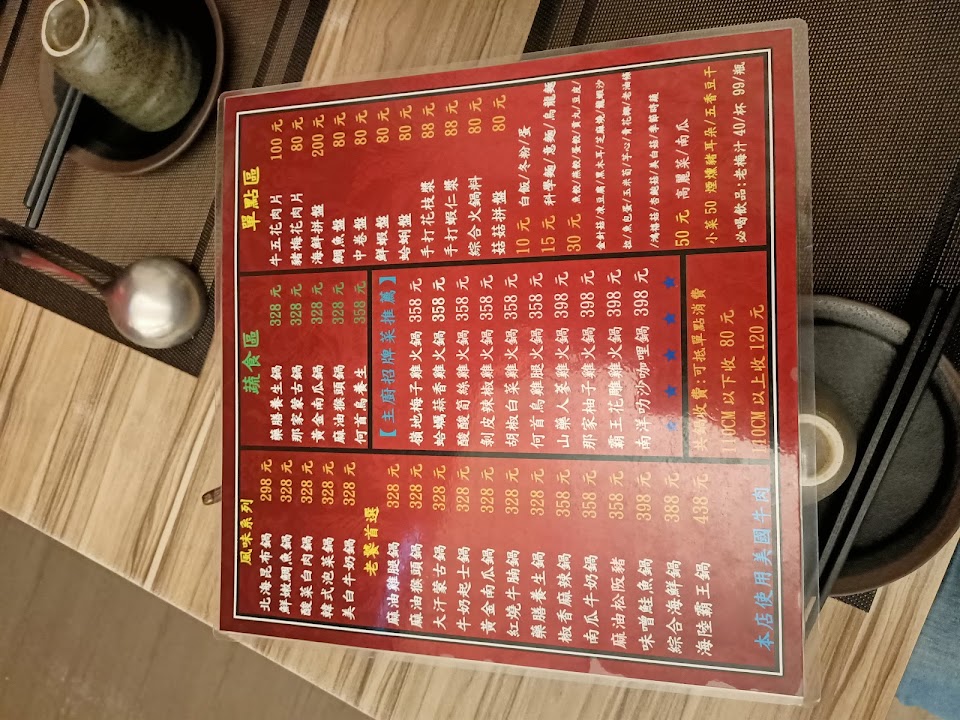 風味系列
北海昆布鍋 298 元
鮮嫩鯛魚鍋 328 元
酸菜白肉鍋 328 元
韓式泡菜鍋 328 元
美白牛奶鍋 328 元
老饕首選
麻油雞腿鍋 328 元
麻油猴頭鍋 328 元
大汗蒙古鍋 328 元
牛奶起士鍋 328 元
黃金南瓜鍋 328 元
紅燒牛腩鍋 328 元
藥膳養生鍋 328 元
椒香麻辣鍋 358 元
南瓜牛奶鍋 358 元
麻油松阪豬 358 元
味噌鮭魚鍋 398 元
綜合海鮮鍋 388 元
海陸霸王鍋 438 元
本店使用美國牛肉
蔬食區
藥膳養生鍋 328 元
那家蒙古鍋 328 元
黃金南瓜鍋 328 元
麻油猴頭鍋 328 元
何首烏養生 358 元
【主廚招牌菜推薦】
嶺地梅子雞火鍋 358 元
蛤蠣蒜香雞火鍋 358 元
酸酸筍絲雞火鍋 358 元
剝皮辣椒雞火鍋 358 元
胡椒白菜雞火鍋 358 元
何首烏雞腿火鍋 358 元
山藥人蔘雞火鍋 398 元
那家柚子雞火鍋 398 元
霸王花雕雞火鍋 398 元
南洋叻沙咖哩鍋 398 元
收費：可抵單點消費
110CM 以下收 80 元
110CM 以上收 120 元
單點區
牛五花肉片 100 元
豬梅花肉片 80 元
海鮮拼盤 200 元
鯛魚盤 80 元
中卷盤 80 元
鮮蝦盤 80 元
蛤蜊盤 80 元
手打花枝漿 88 元
手打蝦仁漿 88 元
綜合火鍋料 80 元
菇菇拼盤 80 元
10 元 白飯/冬粉/蛋
15 元 科學麵/意麵/烏龍麵
30 元 魚餃/燕餃/蛋餃/貢丸/豆皮/
金針菇/凍豆腐/黑木耳/芝麻燒/龍蝦沙
拉/魚包蛋/玉米筍/芋心/青花椰/老油條
/鴻禧菇/杏鮑菇/美白菇/季節時蔬
50 元 高麗菜/南瓜
小菜 50 煙燻豬耳朵/五香豆干
必喝飲品:老梅汁 40/杯 99/瓶